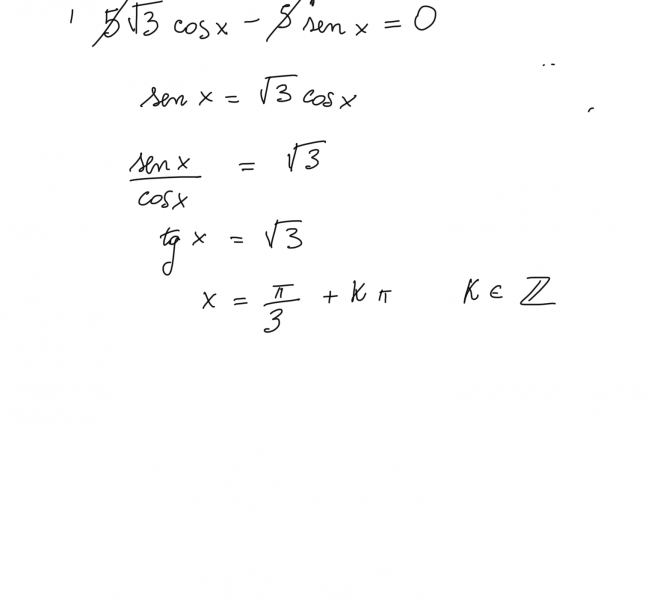 5√3 cos x - 5 sen x = 0
sen x = √3 cos x
sen x / cos x = √3
tg x = √3
x = π/3 + K π K ∈ ℤ